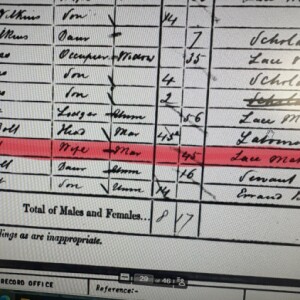 Wilkins Son 14
Wilkins Daur 7 Schol
Occupier Widow 35 Lace M
Son 4 Schol
Son 2 Scholar
Lodger Unm 56 Lace M
Holl Head Mar 45 Labour
Wife Mar 45 Lace Mak
Daur Unm 16 Servant
Son Unm 14 Errand B
Total of Males and Females... 8 17
dings as are inappropriate.
29 of 46
RECORD OFFICE Reference:-